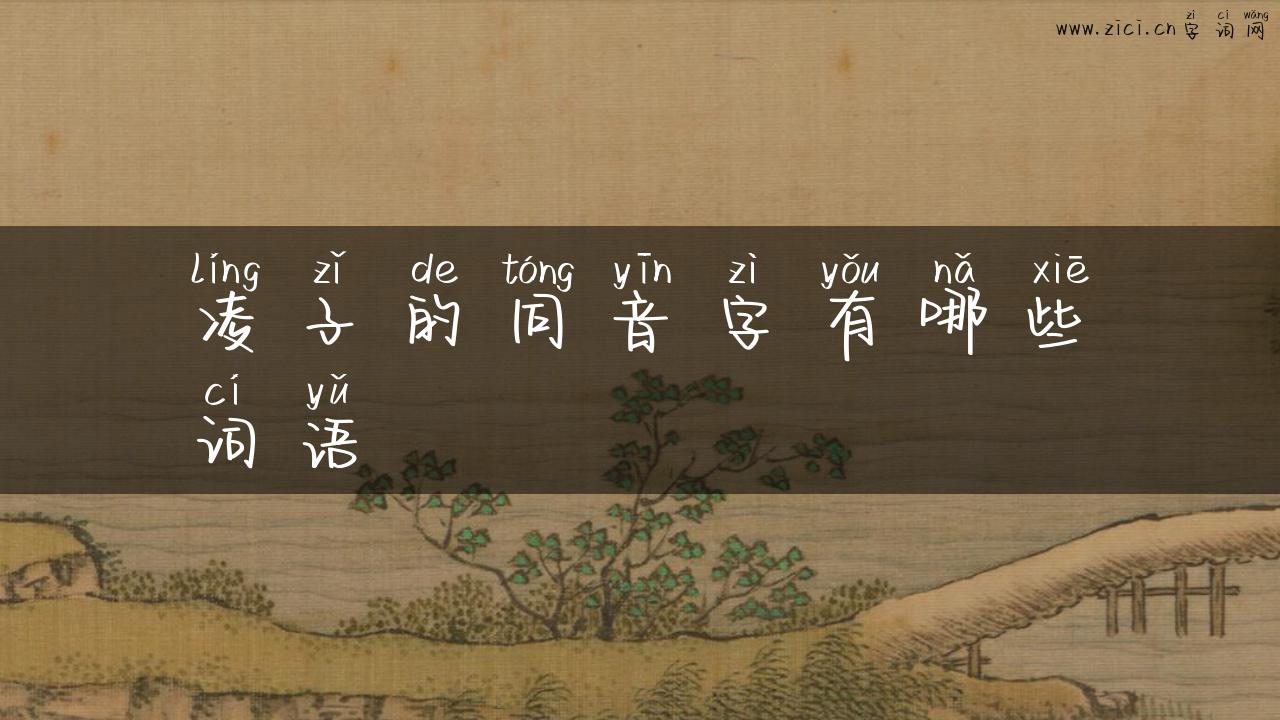 zì cí wǎng
www.zici.cn 字词网
líng zǐ de tóng yīn zì yǒu nǎ xiē
凌子的同音字有哪些
cí yǔ
词语